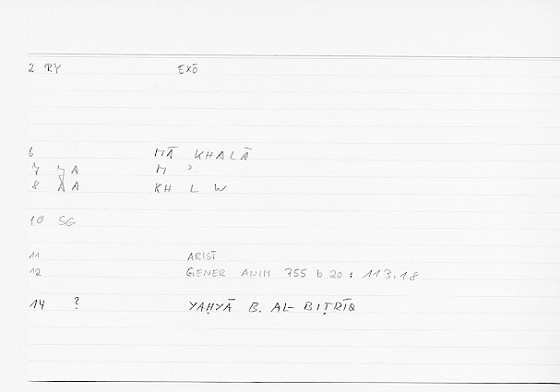 2 RY EXŌ
6 MĀ KHALĀ
7 A M ʾ
8 A KH L W
10 SG
11 ARIST
12 GENER ANIM 755 b 20 : 113,18
14 ? YAḤYĀ B. AL-BIṬRĪQ